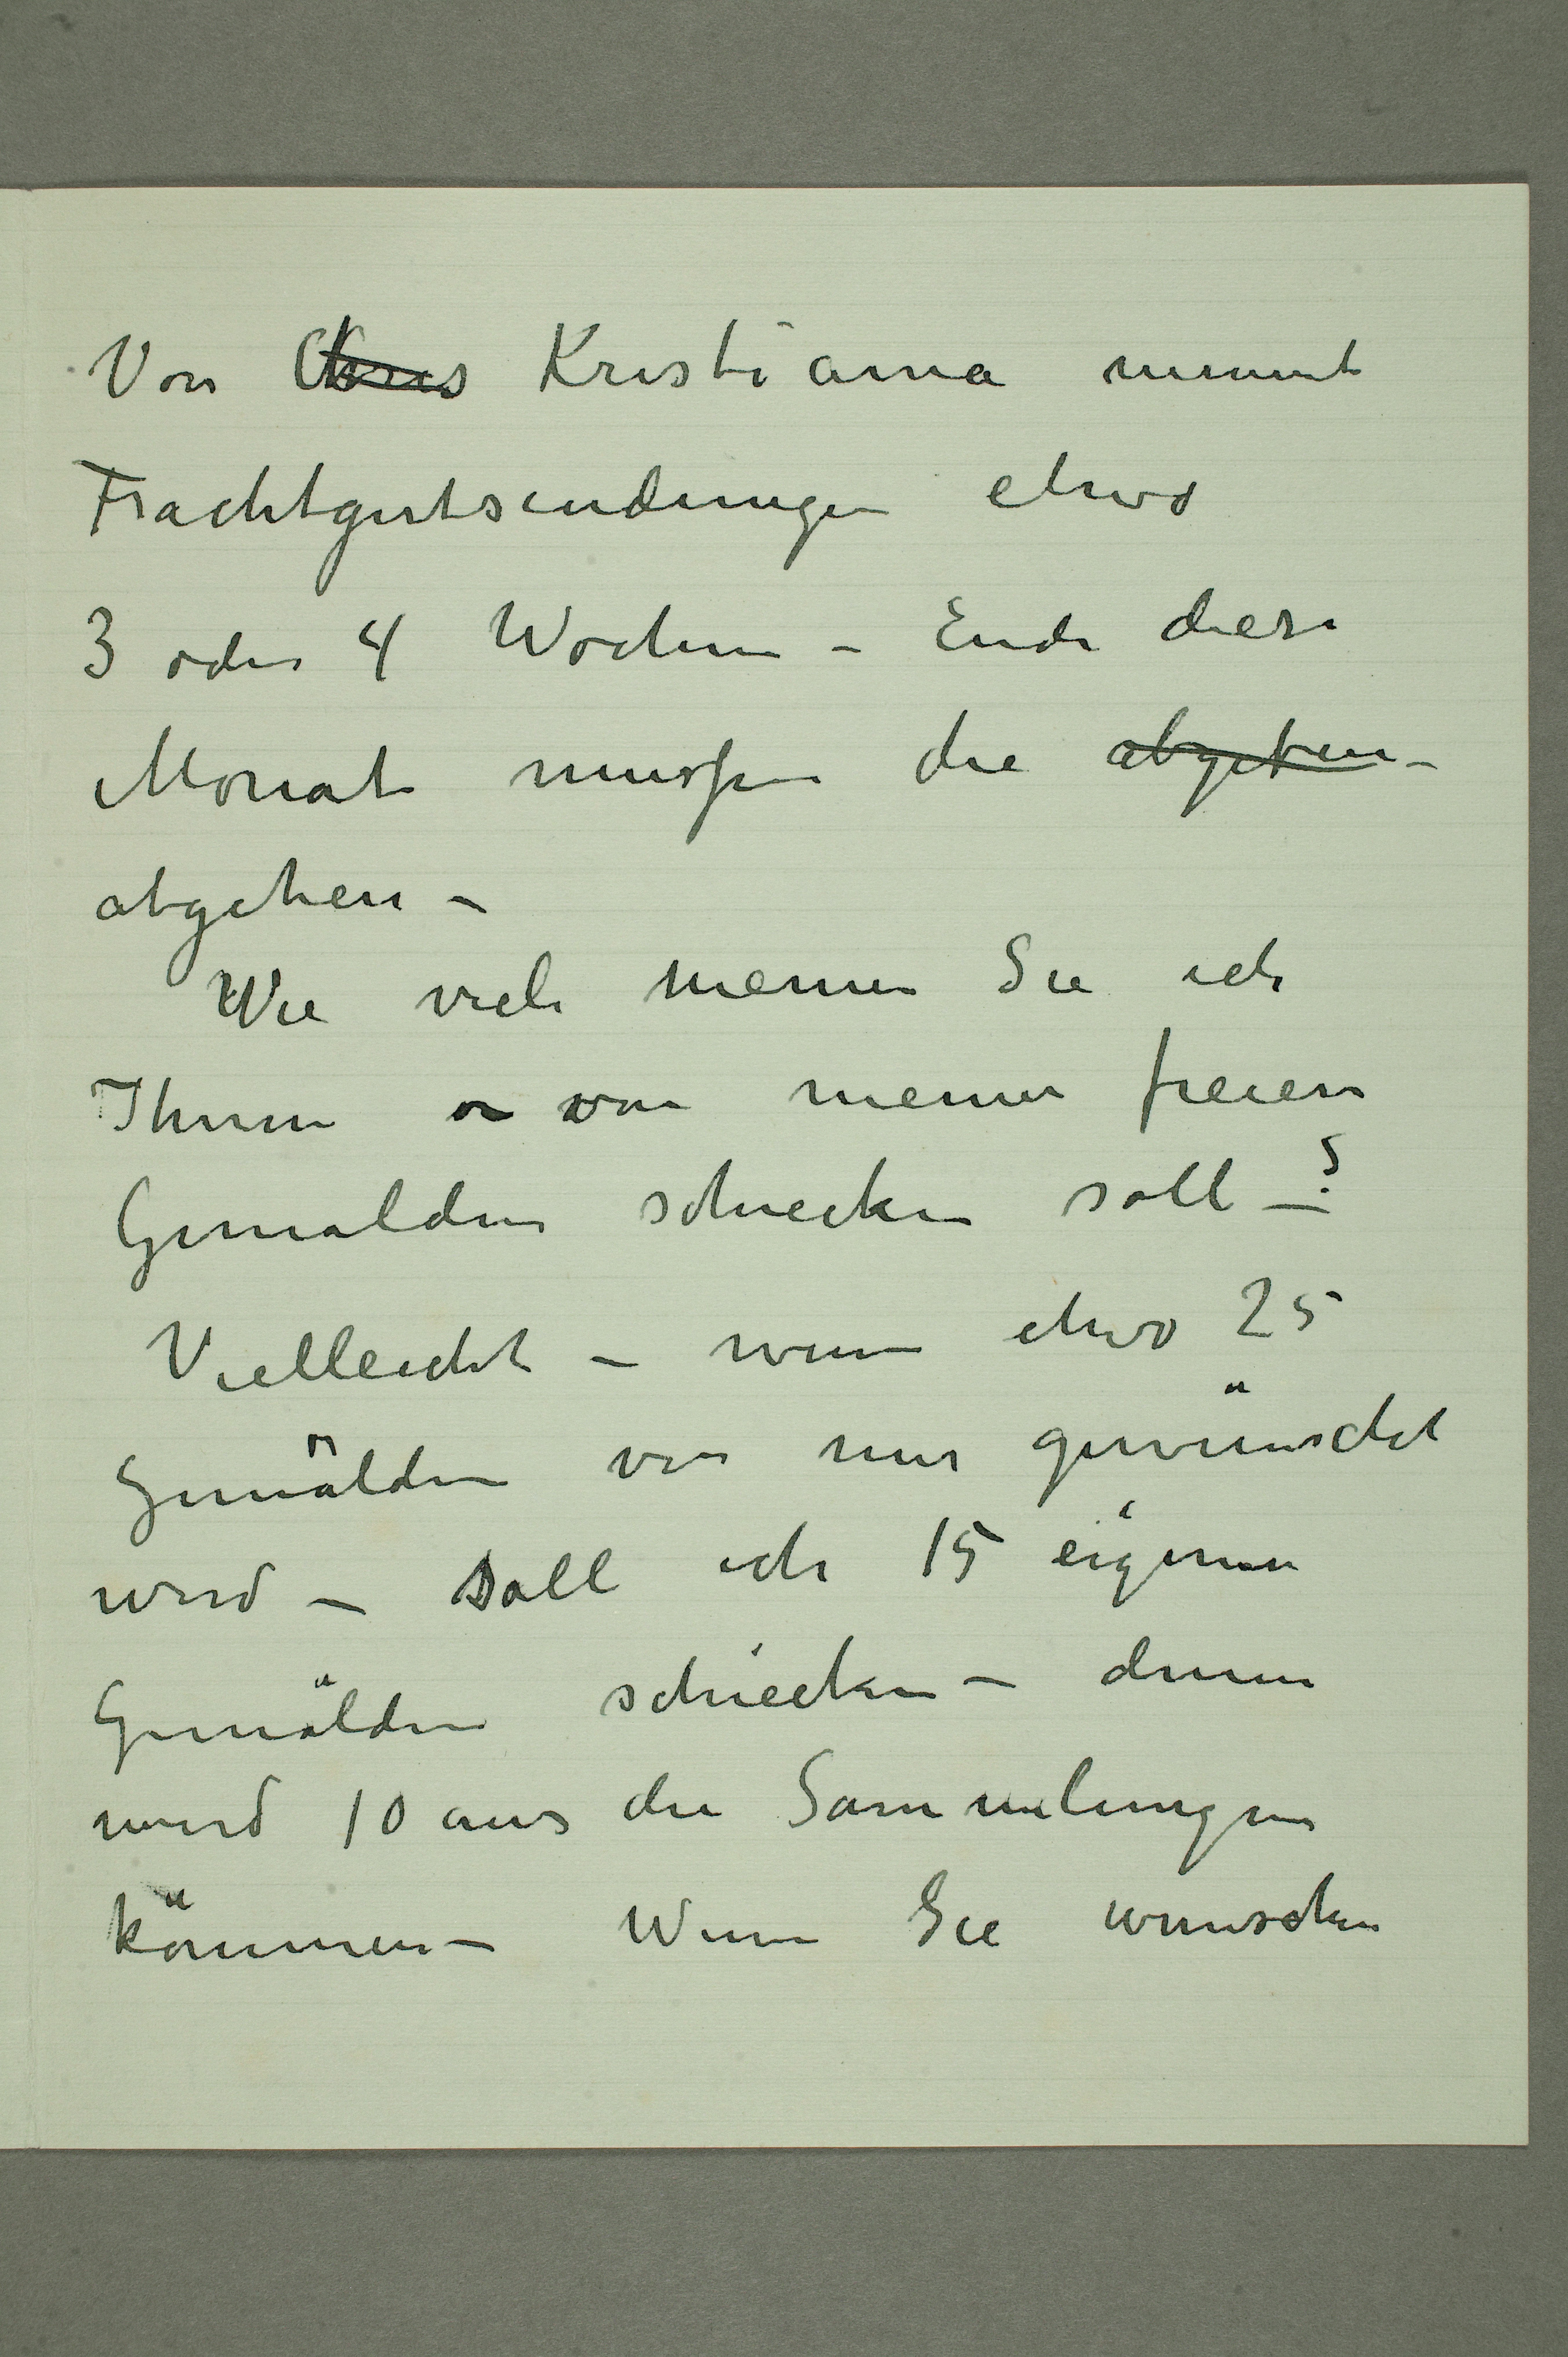 Von Chris Kristiania nimmt
Frachtgutsendungen etwa
3 oder 4 Wochen – Ende diese
Monate mussen die abgeben –
abgehen –
Wie viele meinen Sie ich
Ihnen von meinen freien
Gemalden schiecken soll – ?
Vielleicht – wenn etwa 25
Gemälden von mir gewünscht
wird – soll ich 15 eigenen
Gemälden schiecken – denn
wird 10 aus die Sammlungen
kömmen – Wenn Sie wunschen